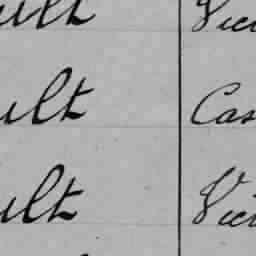 ult Vic
ult Cas
ult Vict